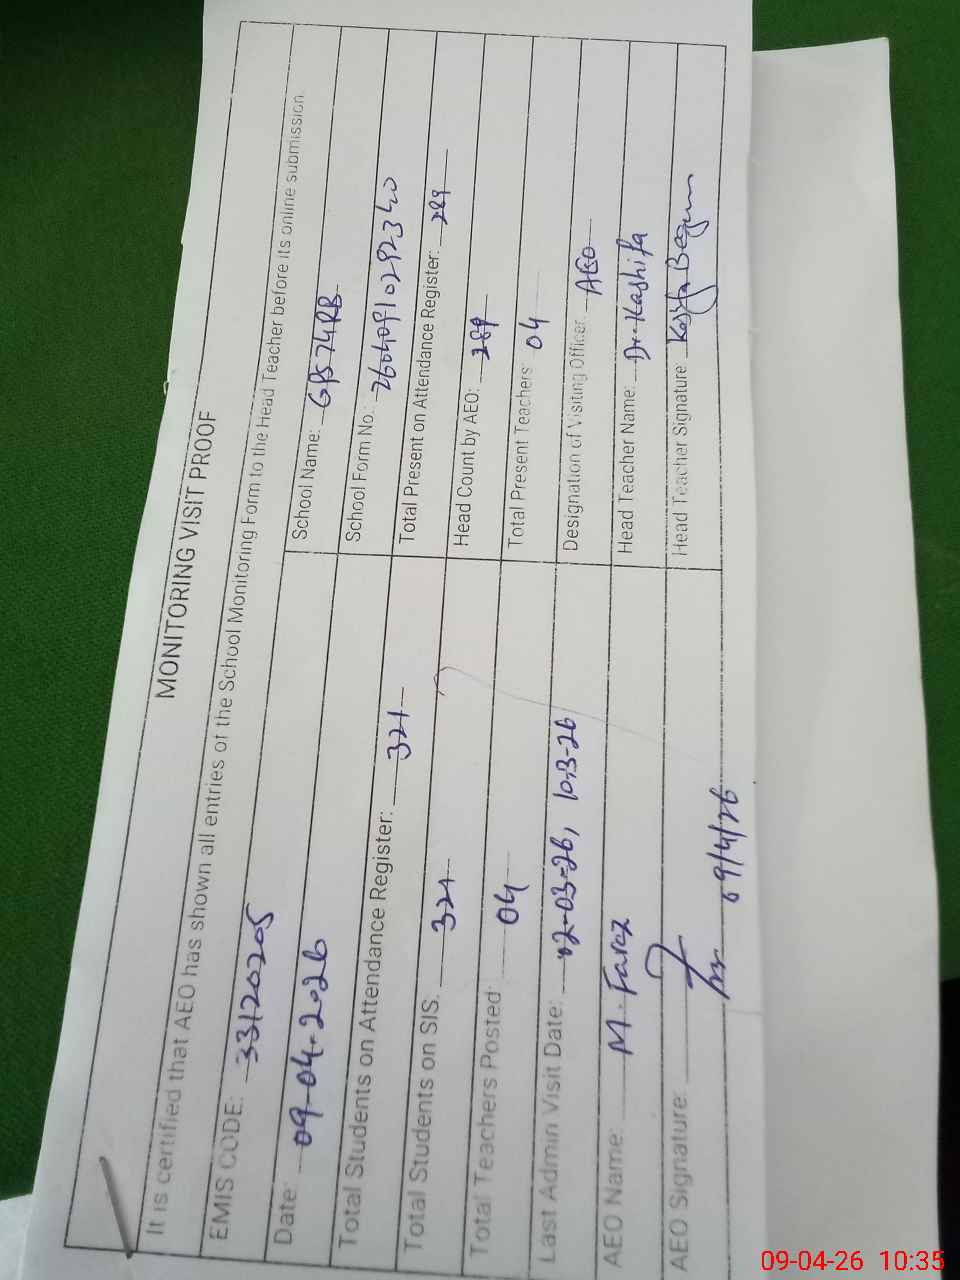 MONITORING VISIT PROOF
It is certified that AEO has shown all entries of the School Monitoring Form to the Head Teacher before its online submission.
EMIS CODE: 33120205 School Name: GPS 74RB
Date: 09-04-2026 School Form No.: 26040910292340
Total Students on Attendance Register: 321 Total Present on Attendance Register: 289
Total Students on SIS: 321 Head Count by AEO: 289
Total Teachers Posted: 04 Total Present Teachers: 04
Last Admin Visit Date: 02-03-26, 10-3-26 Designation of Visiting Officer: AEO
AEO Name: M. Faraz Head Teacher Name: Dr. Kashifa
AEO Signature: 09/4/26 Head Teacher Signature Kashifa Begum
09-04-26 10:35